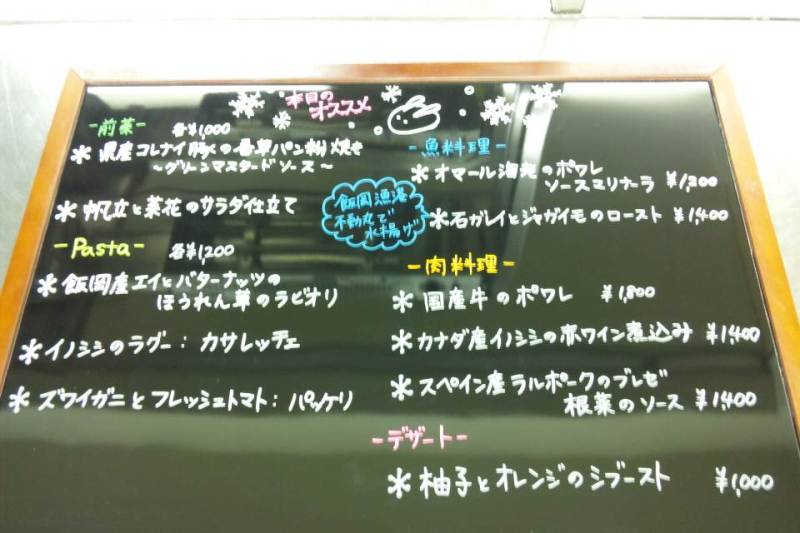 本日の
オススメ
-前菜-
各¥1,000
* 県産コレナイ豚の香草パン粉焼き
~グリーンマスタードソース~
* 帆立と菜花のサラダ仕立て
-Pasta-
各¥1,200
* 飯岡産エイとバターナッツの
ほうれん草のラビオリ
* イノシシのラグー: カサレッチェ
* ズワイガニとフレッシュトマト: パッケリ
飯岡漁港
不動丸で
水揚げ
-魚料理-
* オマール海老のポワレ
ソースマリナーラ ¥1,200
* 石ガレイとジャガイモのロースト ¥1,400
-肉料理-
* 国産牛のポワレ ¥1,800
* カナダ産イノシシの赤ワイン煮込み ¥1,400
* スペイン産ラルポークのブレゼ
根菜のソース ¥1,400
-デザート-
* 柚子とオレンジのシブースト ¥1,000